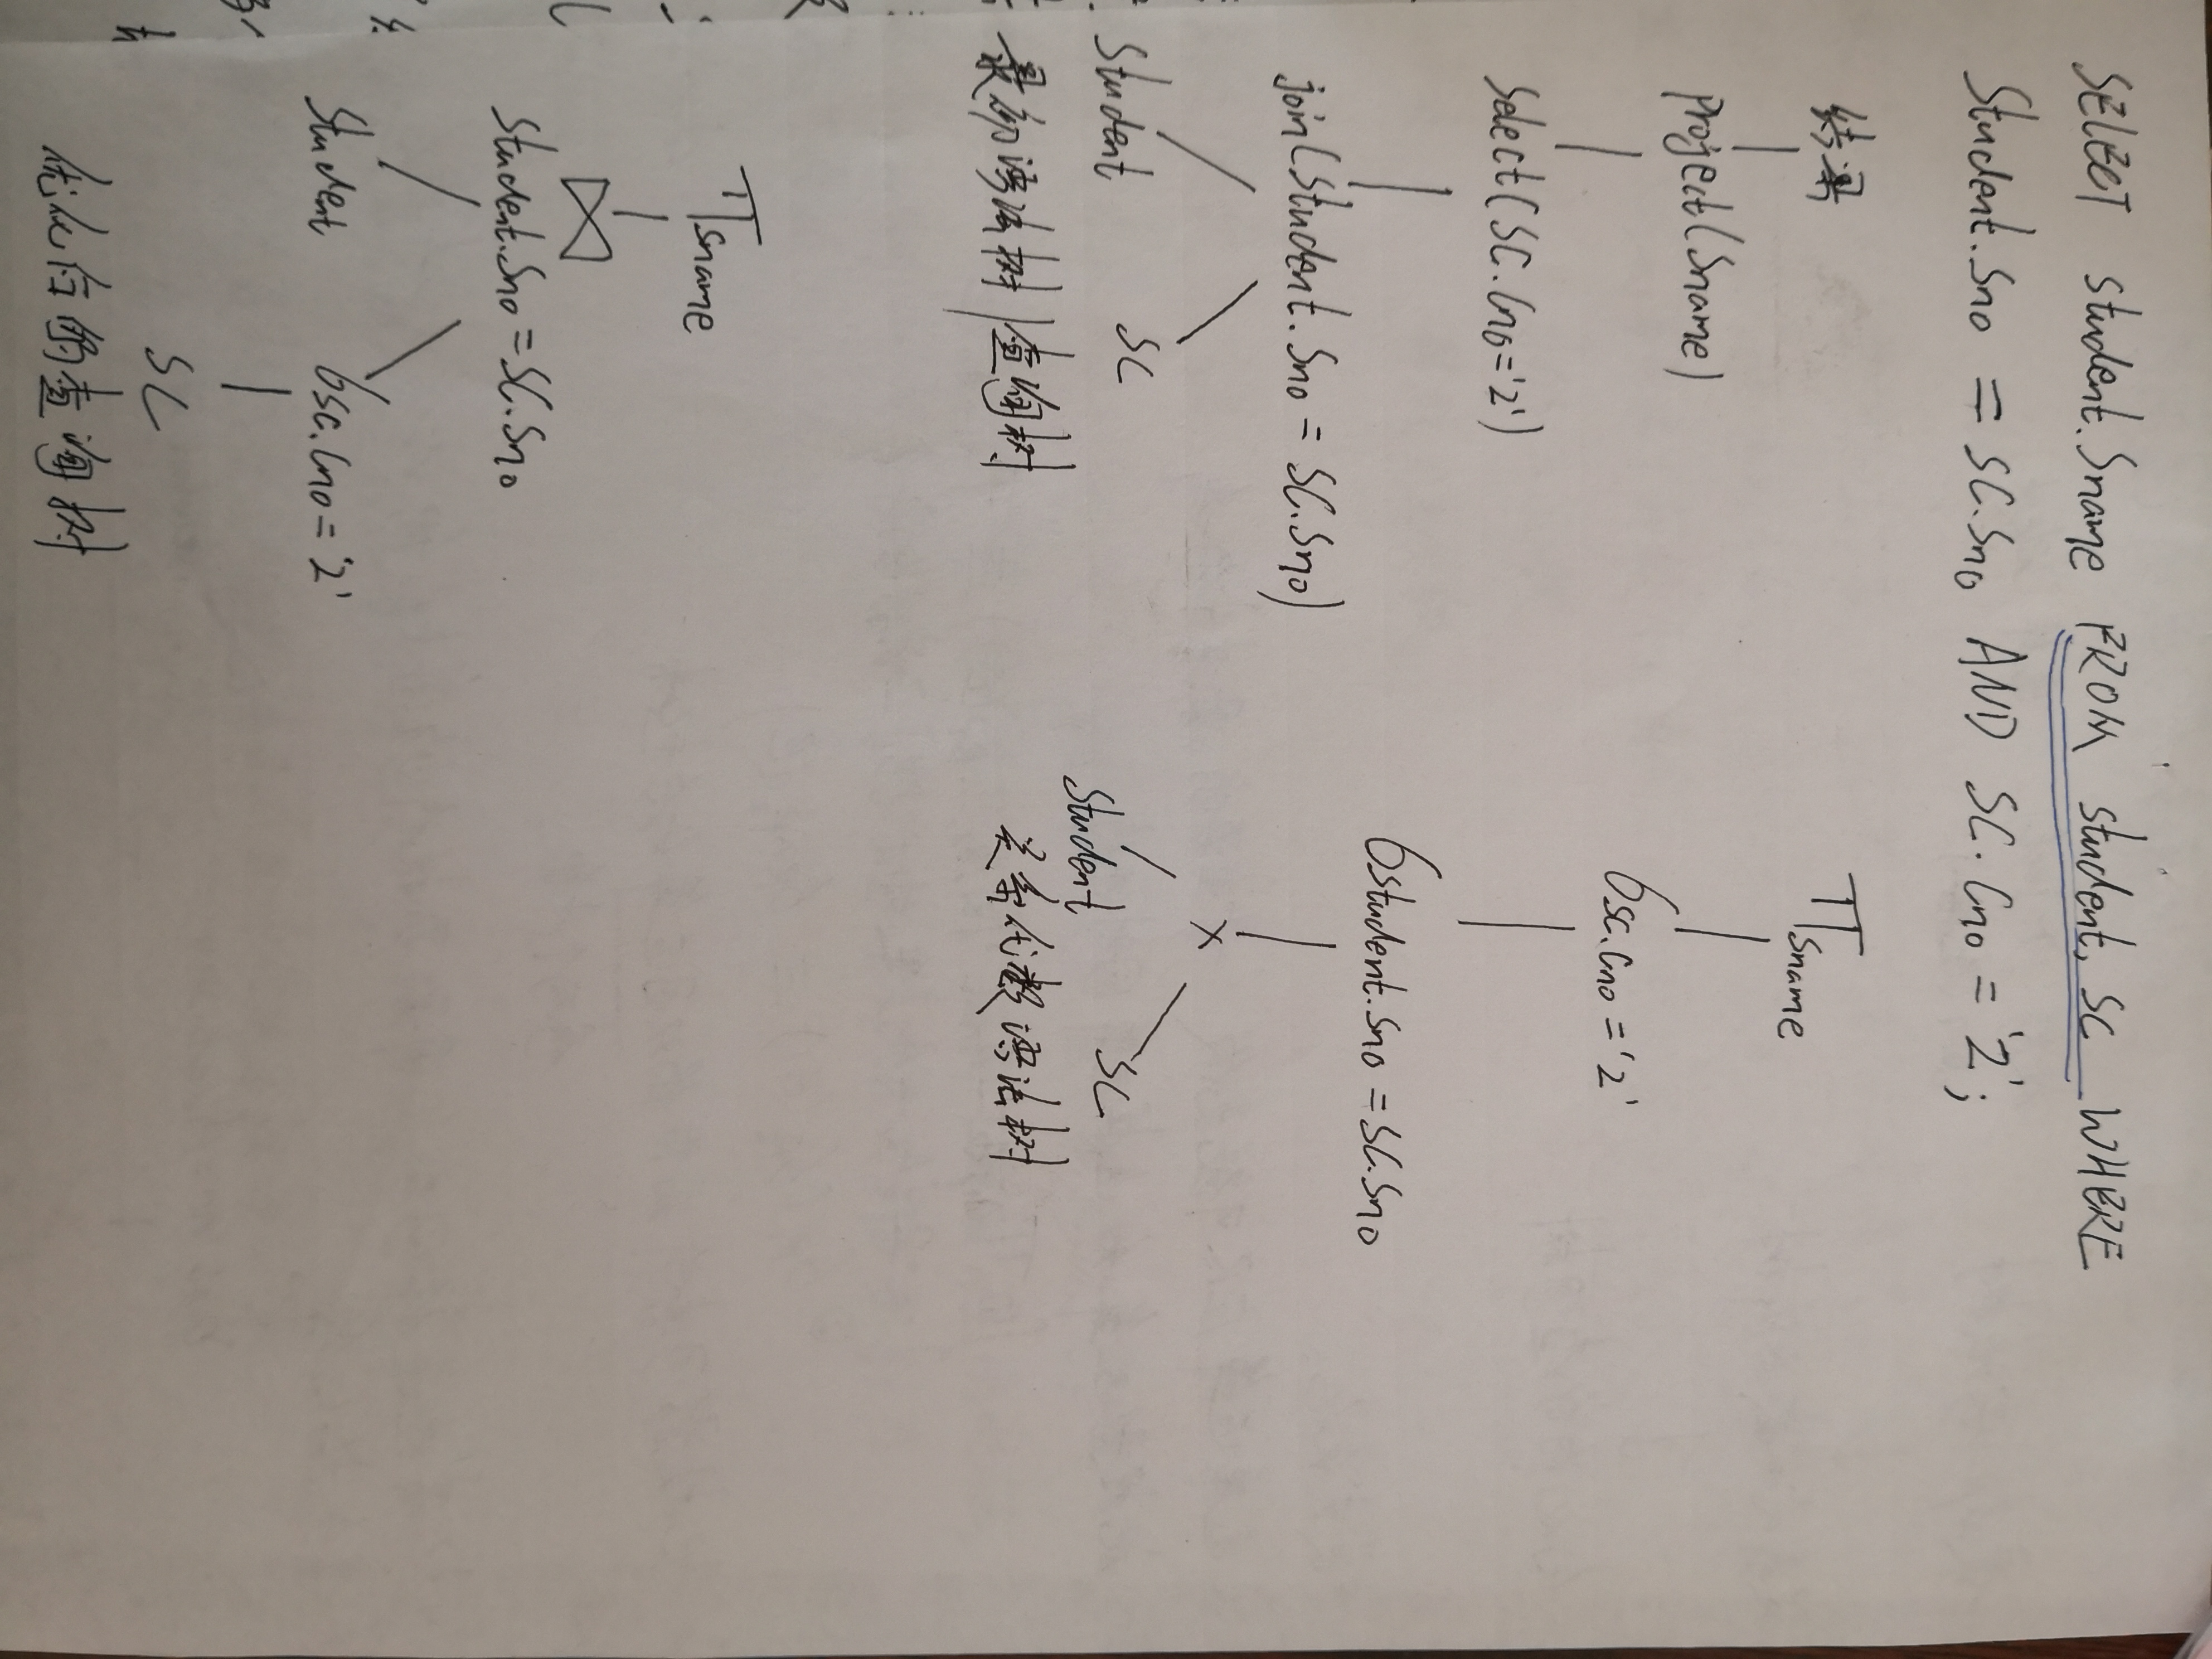 SELECT student.Sname FROM student, SC WHERE
Student.Sno = SC.Sno AND SC.Cno = '2';
结果
Project(Sname)
Select(SC.Cno='2')
join(Student.Sno = SC.Sno)
Student SC
最初语法树/查询树
π Sname
σ SC.Cno='2'
σ Student.Sno=SC.Sno
×
Student SC
关系代数语法树
π Sname
⋈
Student.Sno=SC.Sno
Student σ SC.Cno='2'
SC
优化后的查询树